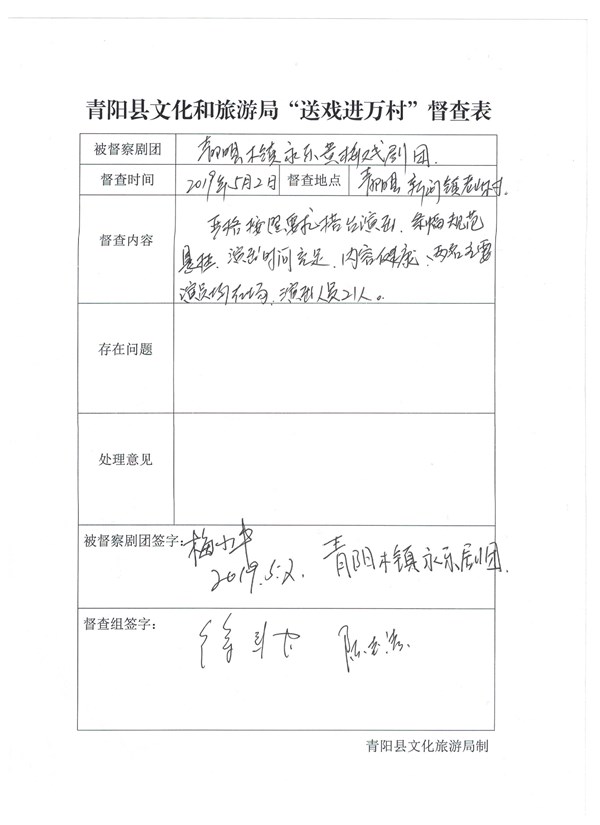 青阳县文化和旅游局“送戏进万村”督查表
被督察剧团 青阳县木镇永乐黄梅戏剧团.
督查时间 2019年5月2日 督查地点 青阳县新河镇老山村.
督查内容
严格按照要求搭台演出、条幅规范
悬挂、演出时间充足、内容健康、两名主要
演员均在场、演出人员21人。
存在问题
处理意见
被督察剧团签字: 梅小华
2019.5.2 青阳木镇永乐剧团.
督查组签字:
青阳县文化旅游局制